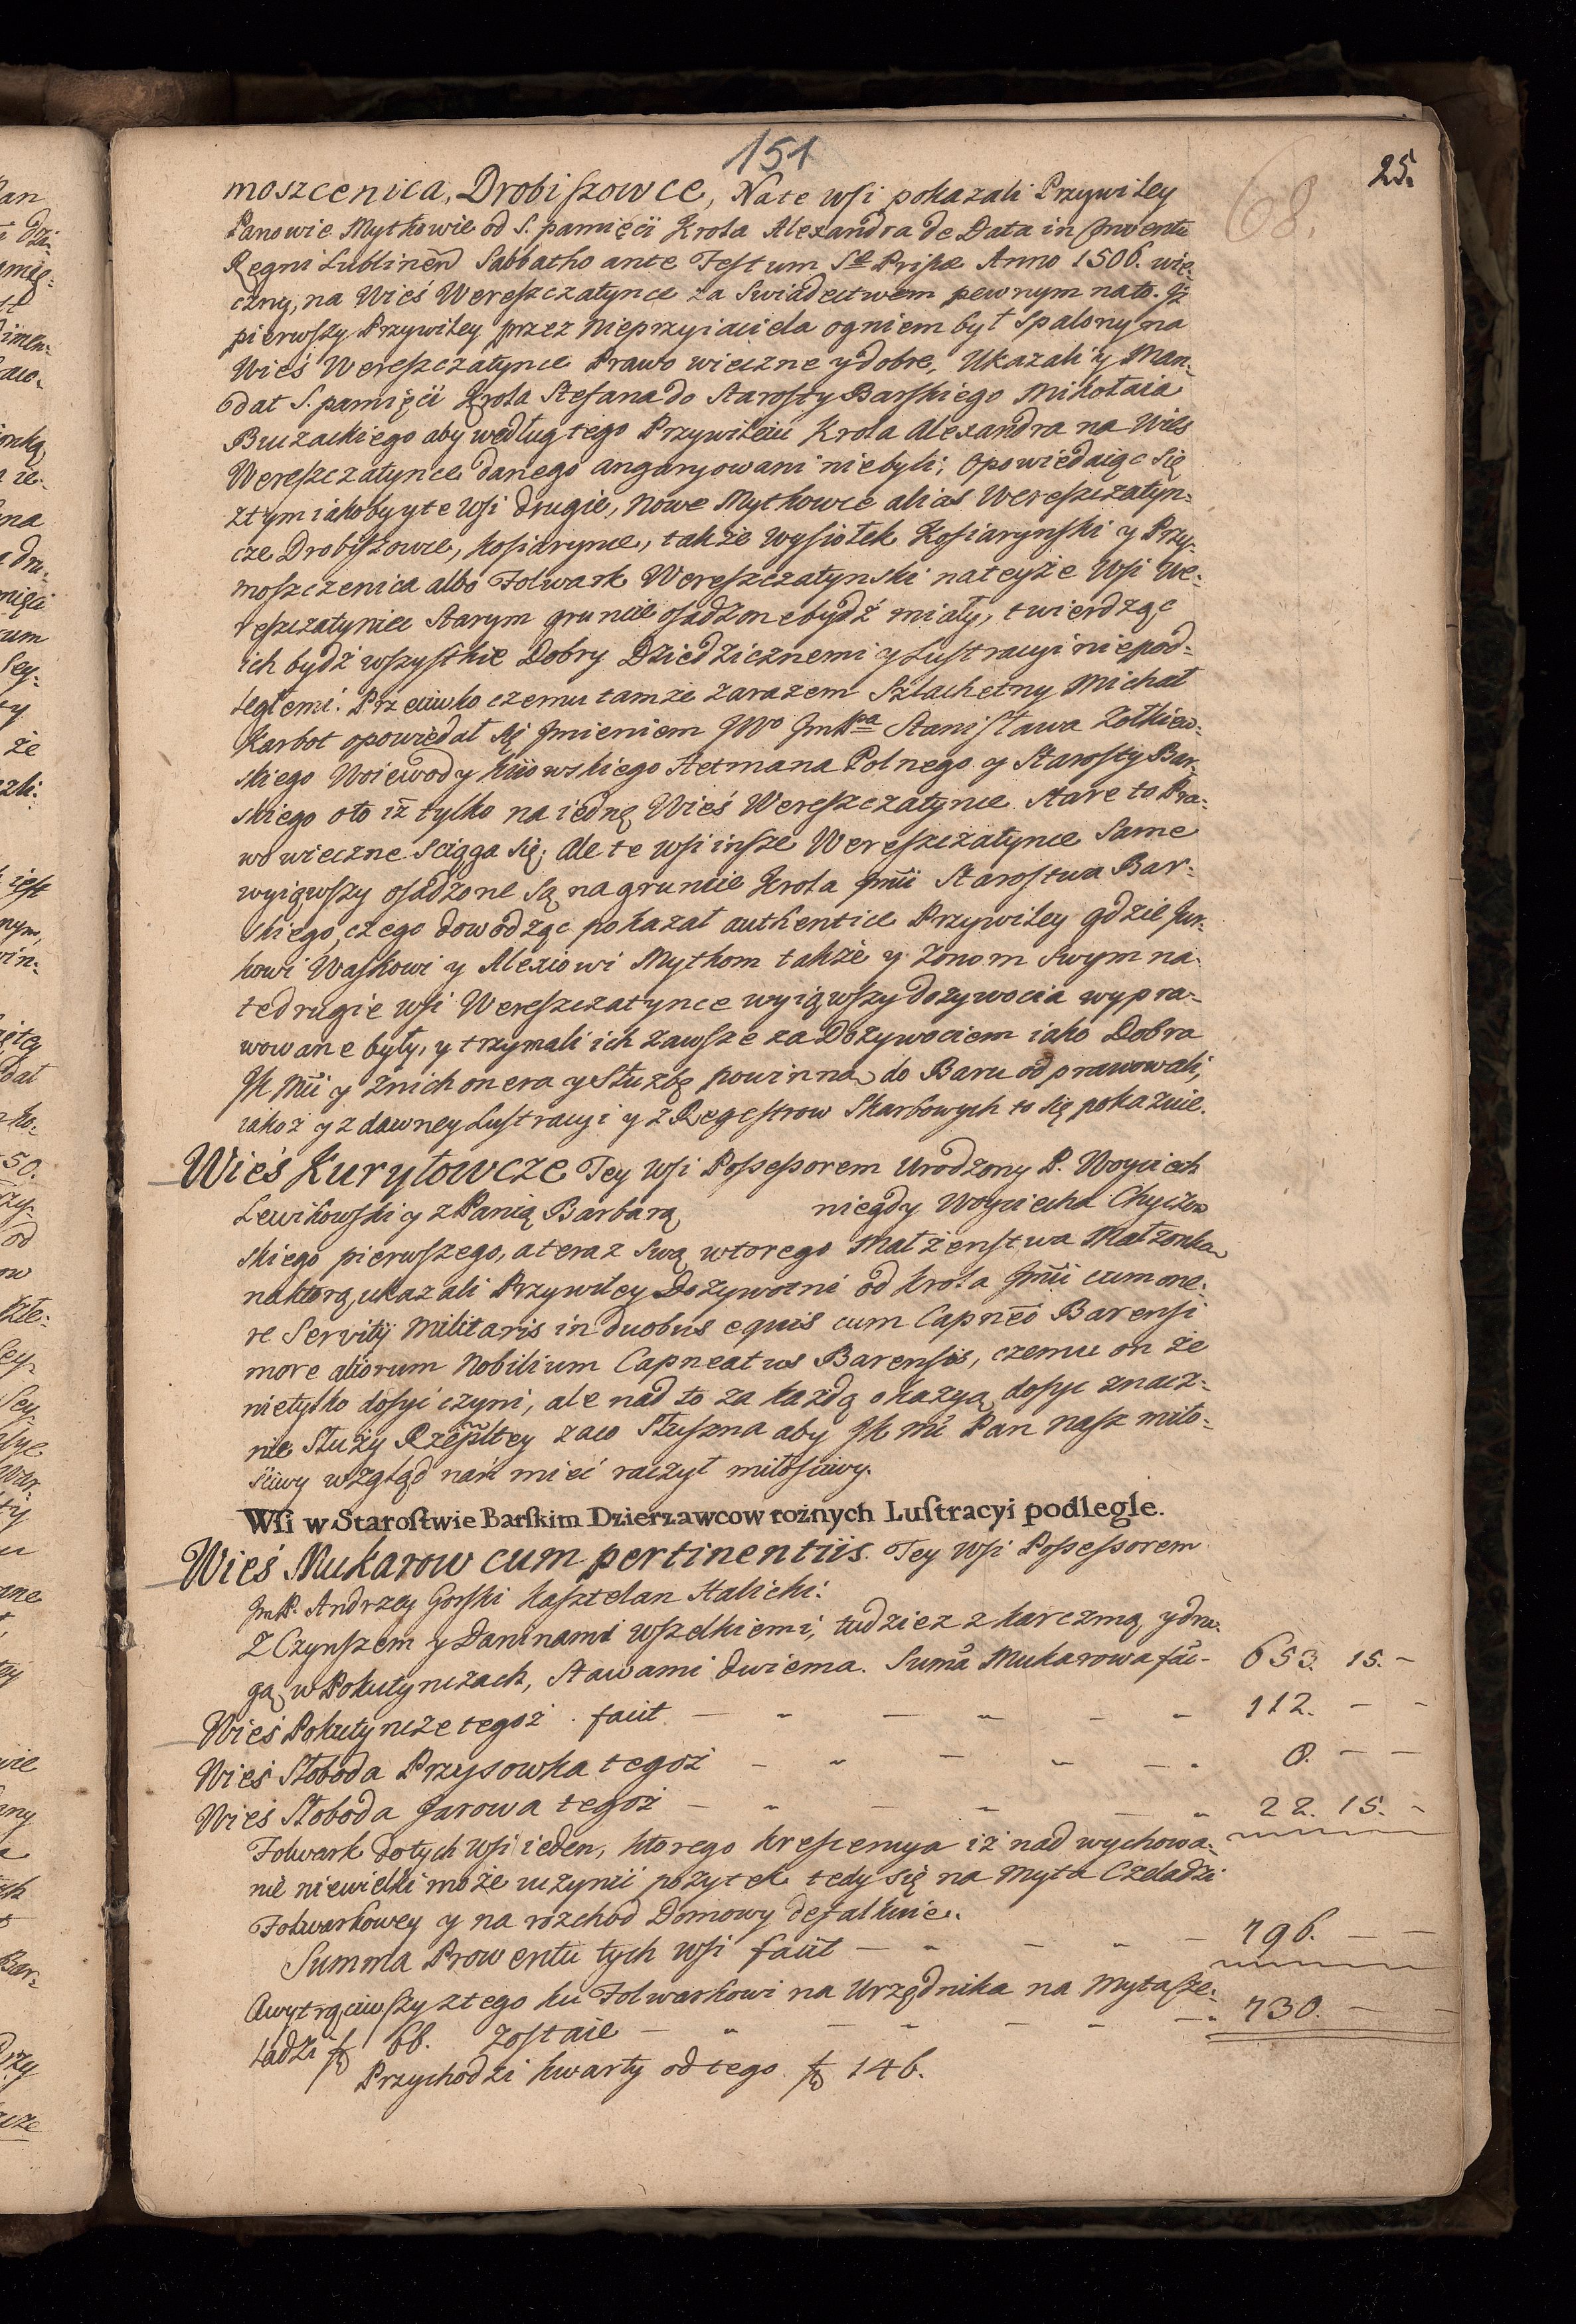 151
25.
68.
moszcenica, Drobiszowce, Na te wsi pokazali Przywiley
Panowie Mytkowie od S. pamięcii Krola Alexandra de Data in Inventu
Regni Lublinen̄ Sabbatho ante Festum Sæ Prisæ Anno 1506. wie-
czny, na Wieś Wereszczatynce za Swiadectwem pewnym na to. Iż
pierwszy Przywiley przez Nieprzyiaciela ogniem był Spalony na
Wieś Wereszczatynce Prawo wieczne y dobre, Ukazali y Man-
dat S. pamięcii Krola Stefana do Starosty Barskiego Mikołaia
Buczackiego aby według tego Przywileiu Krola Alexandra na Wies
Wereszczatynce danego angaryowani niebyli; Opowiedaiąc się
z tym iakoby y te Wsi drugie, Nowe Mytkowce alias Wereszczatyn-
cze Drobiszowce, Kosiarynce, także Wysiołek Kosiarynski y Przy-
moszczenica albo Folwark Wereszczatynski na teyże Wsi We-
reszczatynce Starym gruncie osadzone bydź miały, twierdząc
ich bydź wszystkie Dobry Dziedzicznemi y Lustracyi niepod-
ległemi. Przeciwko czemu tamże zarazem Szlachetny Michał
Karbot opowiedał się Imieniem JWo Jm Pa Stanisława Zołkiew-
skiego Woiewody Kiiowskiego Hetmana Polnego y Starosty Bar-
skiego oto iż tylko na iednę Wieś Wereszczatynce Stare to Pra-
wo wieczne sciąga się; Ale te wsi insze Wereszczatynce Same
wyiąwszy osadzone są na gruncie Krola Jmci Starostwa Bar-
skiego, czego dowodząc pokazał authentice Przywiley gdzie Jur-
kowi Waskowi y Alexiowi Mytkom także y żonom swym na
te drugie wsi Wereszczatynce wyiąwszy dożywocia wypra-
wowane były, y trzymali ich zawsze za Dożywociem iako Dobra
JK Mci y z nich onera y Służbę powinną do Baru odprawowali,
iakoż y z dawney Lustracyi y z Regestrow Skarbowych to się pokazuie.
Wieś Kuryłowcze Tey Wsi Possessorem Urodzony P. Woyciech
Lewikowski y z Panią Barbarą niegdy Woyciecha Chyczew
skiego pierwszego, a teraz Swą wtorego Małżenstwa Małżonką
na którą, ukazali Przywiley Dożywotni od Krola Jmci cum one-
re Servitij Militaris in duobus equis cum Capneo Barensi
more aliorum Nobilium Capneatus Barensis, czemu on że
nietylko dosyć czyni, ale nad to za każdą okazyą dosyć znacz-
nie Służy Rzepltey zaco Słuszna aby JK Mć Pan Nasz miło-
ściwy wzgląd nań mieć raczył miłościwy.
Wsi w Starostwie Barskim Dzierzawcow rożnych Lustracyi podległe.
Wieś Mukarow cum pertinentiis. Tey Wsi Possessorem
Jm P. Andrzey Gorski Kasztelan Halicki:
Z Czynszem y Daninami wszelkiemi, tudziez z karczmą y dru-
gą w Pokutynczach, Stawami dwiema. Suma Mukarowa fac- 653. 15. -
Wieś Pokutyncze tegoż. facit - - - - - - 112. - -
Wieś Słoboda Przysowka tegoż - - - - - - 0. - -
Wieś Słoboda Jarowa tegoż - - - - - - 22. 15. -
Folwark do tych Wsi ieden, ktorego krescencya iż nad wychowa-
nie niewielki może uczynić pożytek tedy się na Myta Czeladzi
Folwarkowey y na rozchod Domowy defalkuie.
Summa Prowentu tych wsi facit - - - - - 796. - -
A wytrąciwszy z tego ku Folwarkowi na Urzędnika na Myta Cze-
ladzi f 66. zostaie - - - - - - - 730. - -
Przychodzi kwarty od tego f 146.